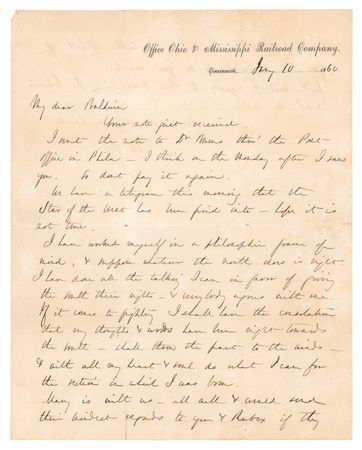 Office Ohio & Mississippi Railroad Company.
Cincinnati, Jany 10 1860
My dear Baldwin
Your note just received.
I sent the note to Dr thro' the Post
office in Phila – I think on the Monday after I saw
you. So dont pay it again.
We have a telegram this morning that the
Star of the West has been fired into – hope it is
not true.
I have worked myself in a philosophic frame of
mind, & suppose whatever the north does is right.
I have done all the talking I can in favor of giving
the south their rights – & everybody agrees with me.
If it comes to fighting I shall have the consolation
that my thoughts & words have been right towards
the south – shall throw the past to the winds –
& with all my heart & soul do what I can for
the section in which I was born.
Mary is with us – all well & send
their kindest regards to you & if they